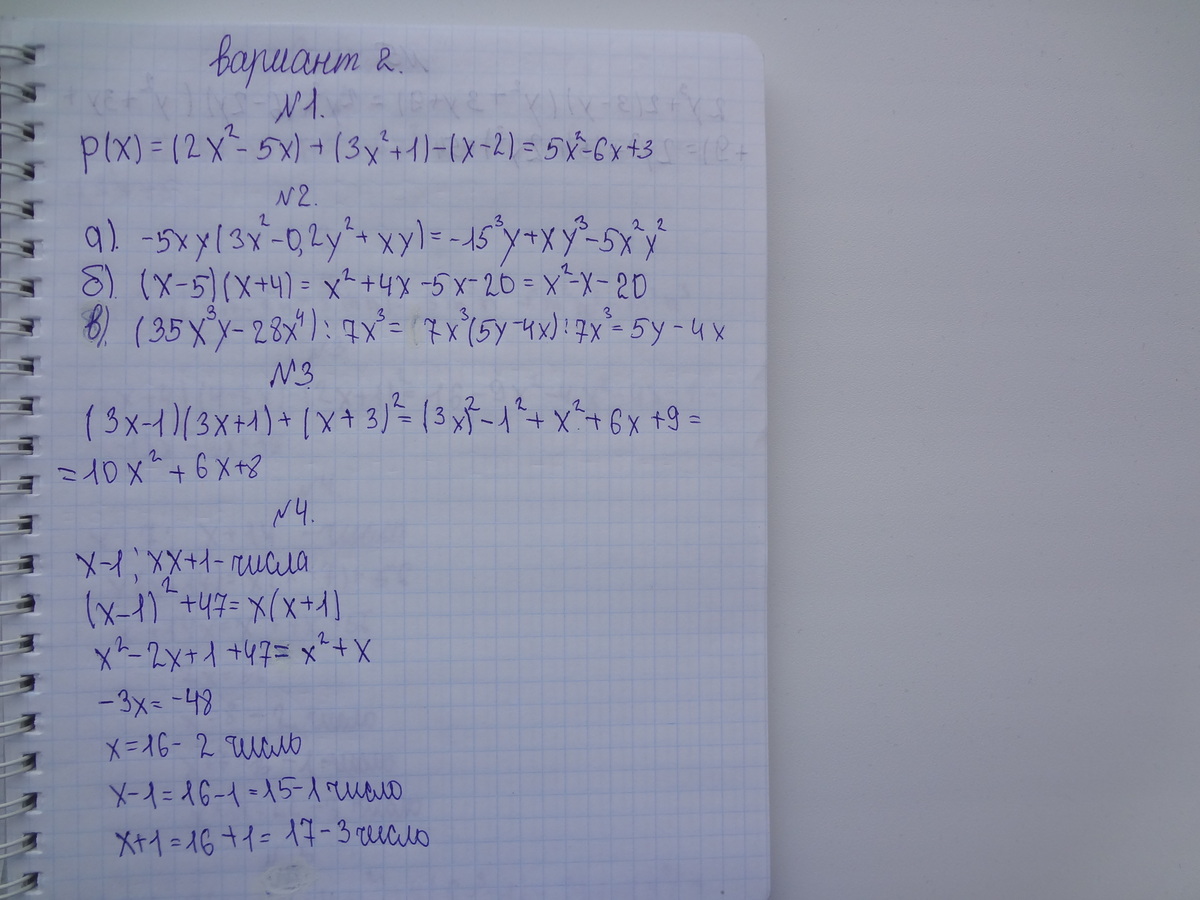 вариант 2.
№1.
p(x)=(2x²-5x)+(3x²+1)-(x-2)=5x²-6x+3
№2.
а). -5xy(3x²-0,2y²+xy)=-15³y+xy³-5x²y²
б). (x-5)(x+4)=x²+4x-5x-20=x²-x-20
в). (35x³y-28x⁴):7x³=7x³(5y-4x):7x³=5y-4x
№3
(3x-1)(3x+1)+(x+3)²=(3x)²-1²+x²+6x+9=
=10x²+6x+8
№4.
x-1; xx+1-числа
(x-1)²+47=x(x+1)
x²-2x+1+47=x²+x
-3x=-48
x=16- 2 число
x-1=16-1=15-1 число
x+1=16+1=17-3 число